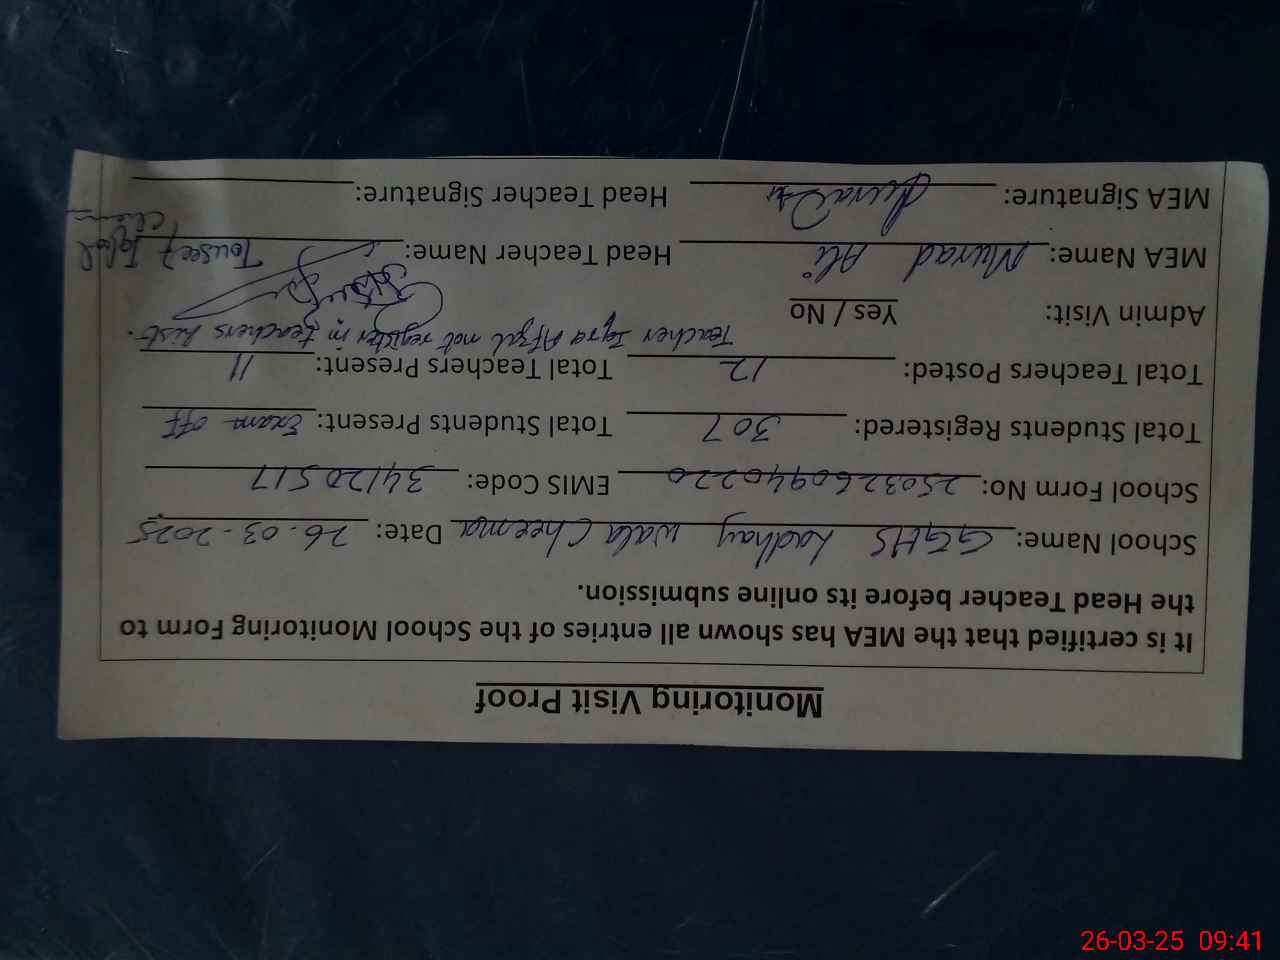 Monitoring Visit Proof
It is certified that the MEA has shown all entries of the School Monitoring Form to
the Head Teacher before its online submission.
School Name: GGHS Ladhay wala Cheema Date: 26.03-2025
School Form No: 2503260940220 EMIS Code: 34120517
Total Students Registered: 307 Total Students Present: Exam off
Total Teachers Posted: 12 Total Teachers Present: 11
Teacher Iqra Afzal not register in teachers list.
Admin Visit: Yes / No
MEA Name: Murad Ali Head Teacher Name: Touseef Iqbal
Cheema
MEA Signature: Head Teacher Signature:
26-03-25 09:41